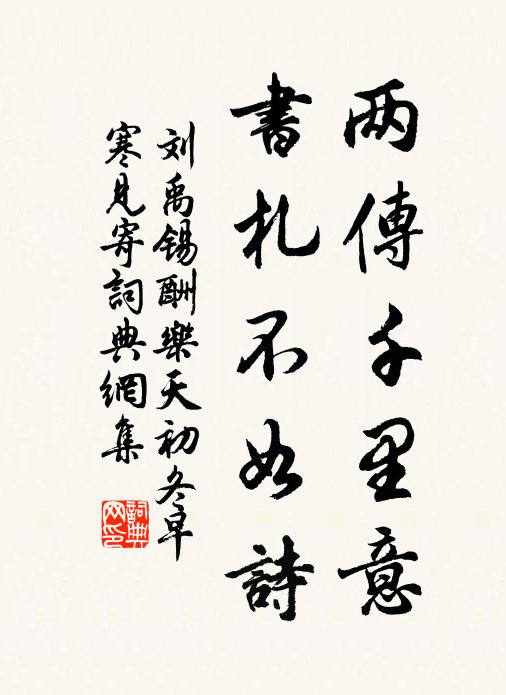 两傳千里意
書札不如詩
刘禹锡酬樂天初冬早
寒見寄詞典網集
詞典
网印